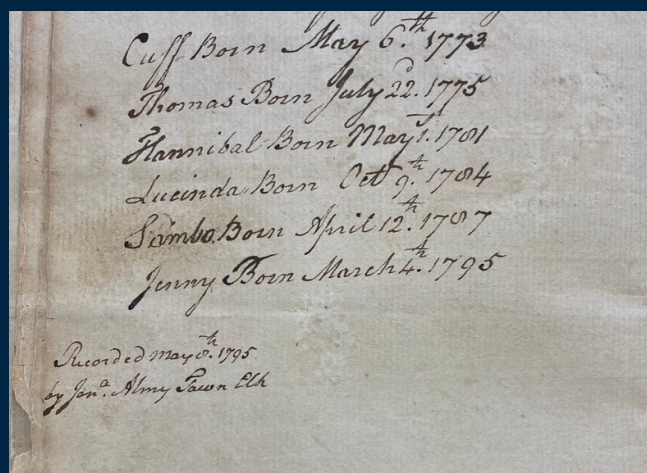 Cuff Born May 6.th 1773
Thomas Born July 22.d 1775
Hannibal Born May 1.st 1781
Lucinda Born Oct 9.th 1784
Sambo Born April 12.th 1787
Jenny Born March 4.th 1795
Recorded May 8.th 1795
by Jon.a Almy Town Clk